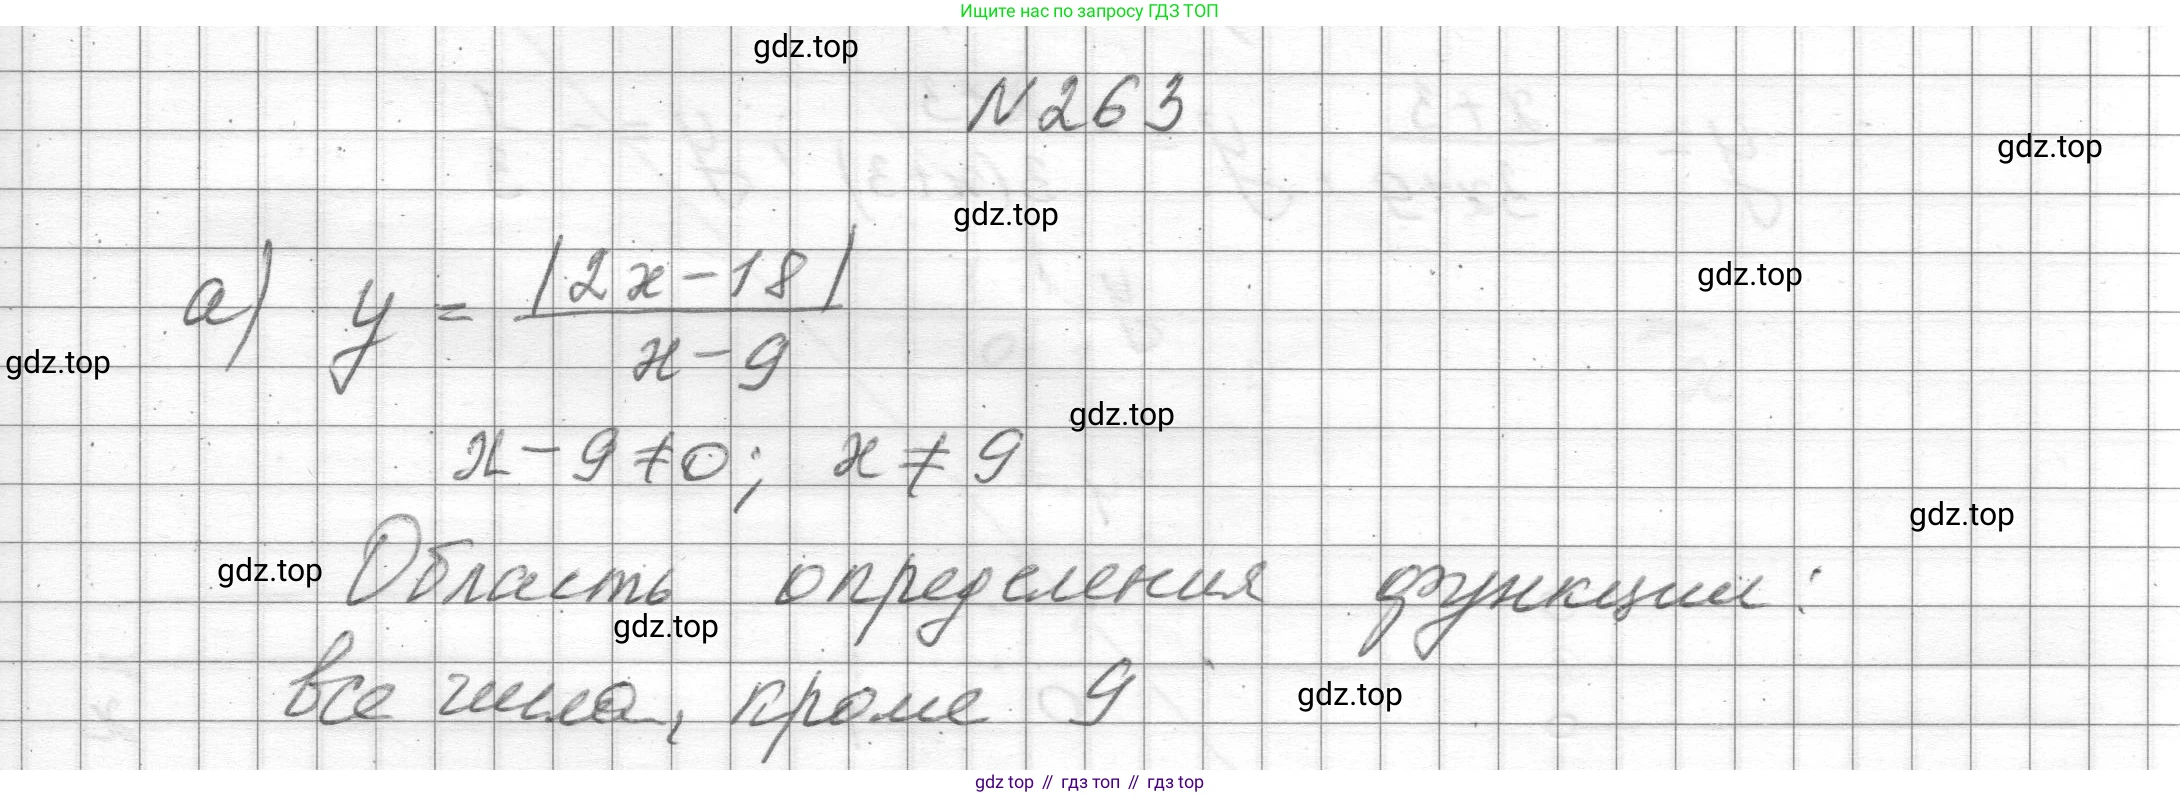 Ищите нас по запросу ГДЗ ТОП
gdz.top
N 263
gdz.top
gdz.top
gdz.top
а) y = |2x-18| / x-9
gdz.top
gdz.top
x-9≠0; x≠9
gdz.top
gdz.top
Область определения функции:
gdz.top
все числа, кроме 9
gdz.top
gdz.top // гдз топ // гдз top